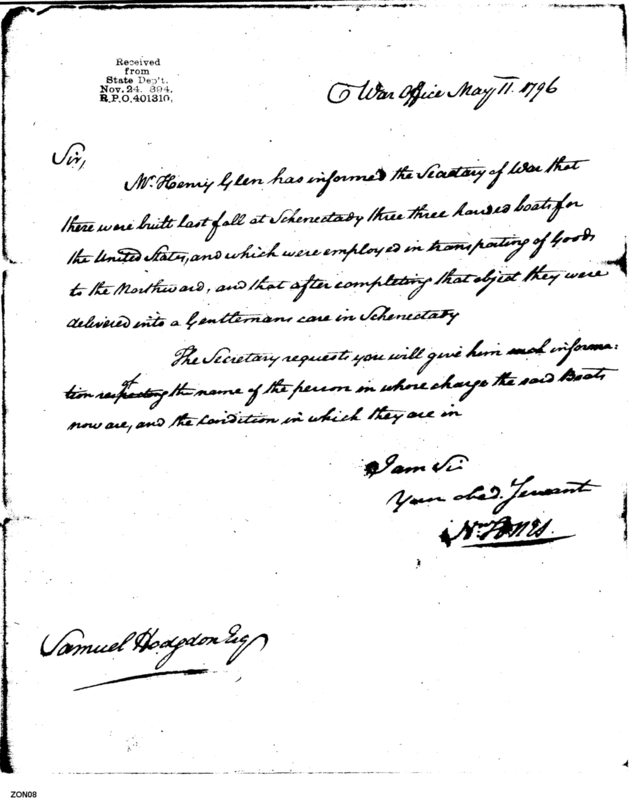 Received
from
State Dep't.
Nov. 24. 894.
R.P.O. 401310.
War Office May 11. 1796
Sir,
Mr. Henry Glen has informed the Secretary of War that
there were built last fall at Schenectady three three handed boats for
the United States, and which were employed in transporting of Goods
to the Northward, and that after completing that object they were
delivered into a Gentlemans care in Schenectady
The Secretary requests you will give him such informa:
tion respecting the name of the person in whose charge the said Boats
now are, and the Condition in which they are in
I am Sir
Your obed. Servant
Wm Jones.
Samuel Hodgdon Esq
ZON08